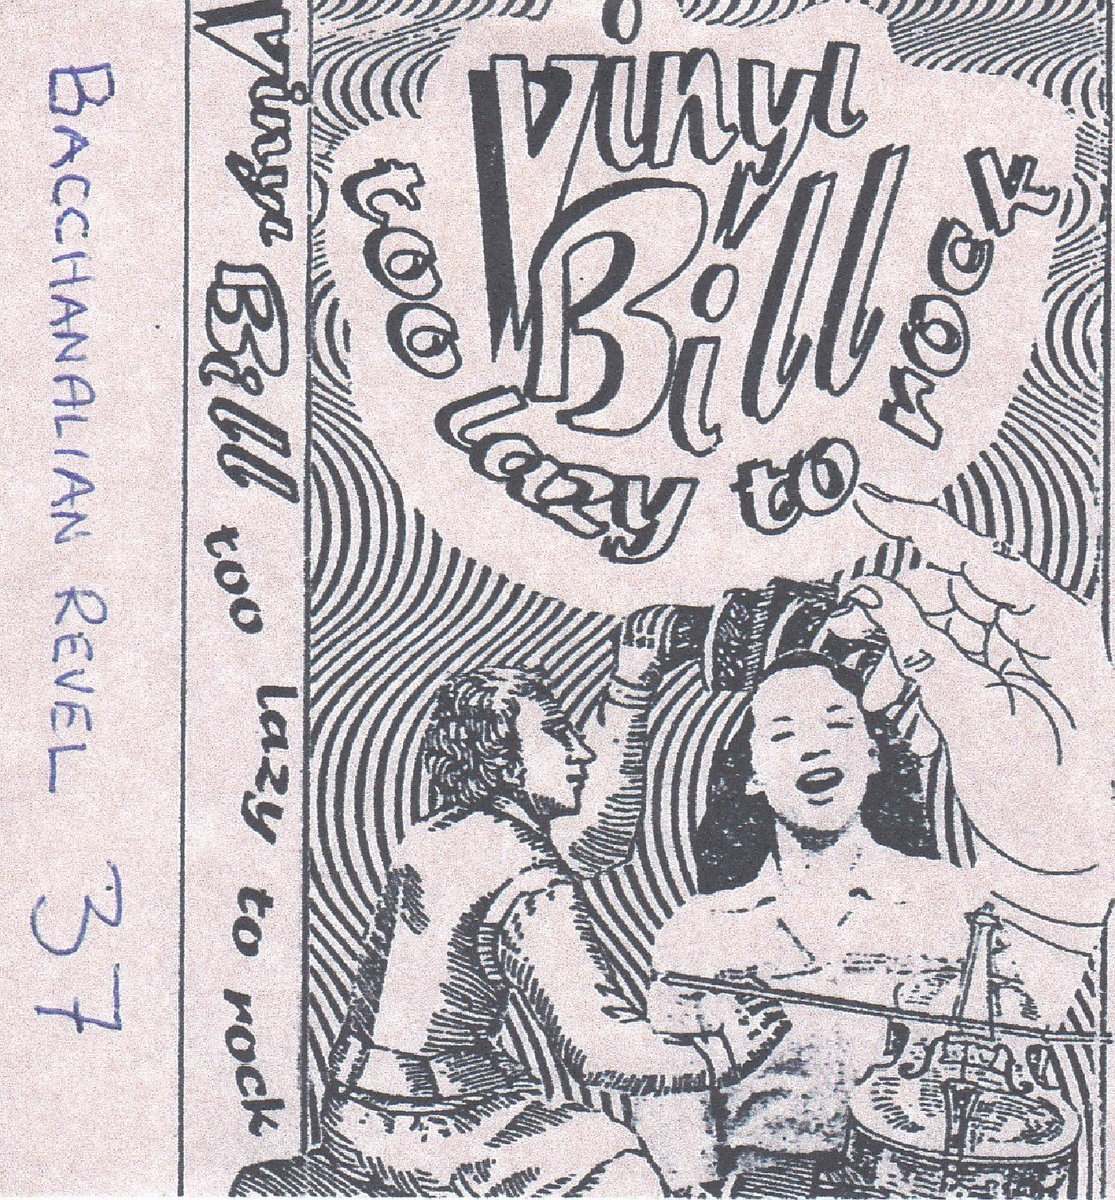 Vinyl
Bill
too lazy to rock
Vinyl Bill too lazy to rock
BACCHANALIAN REVEL 37